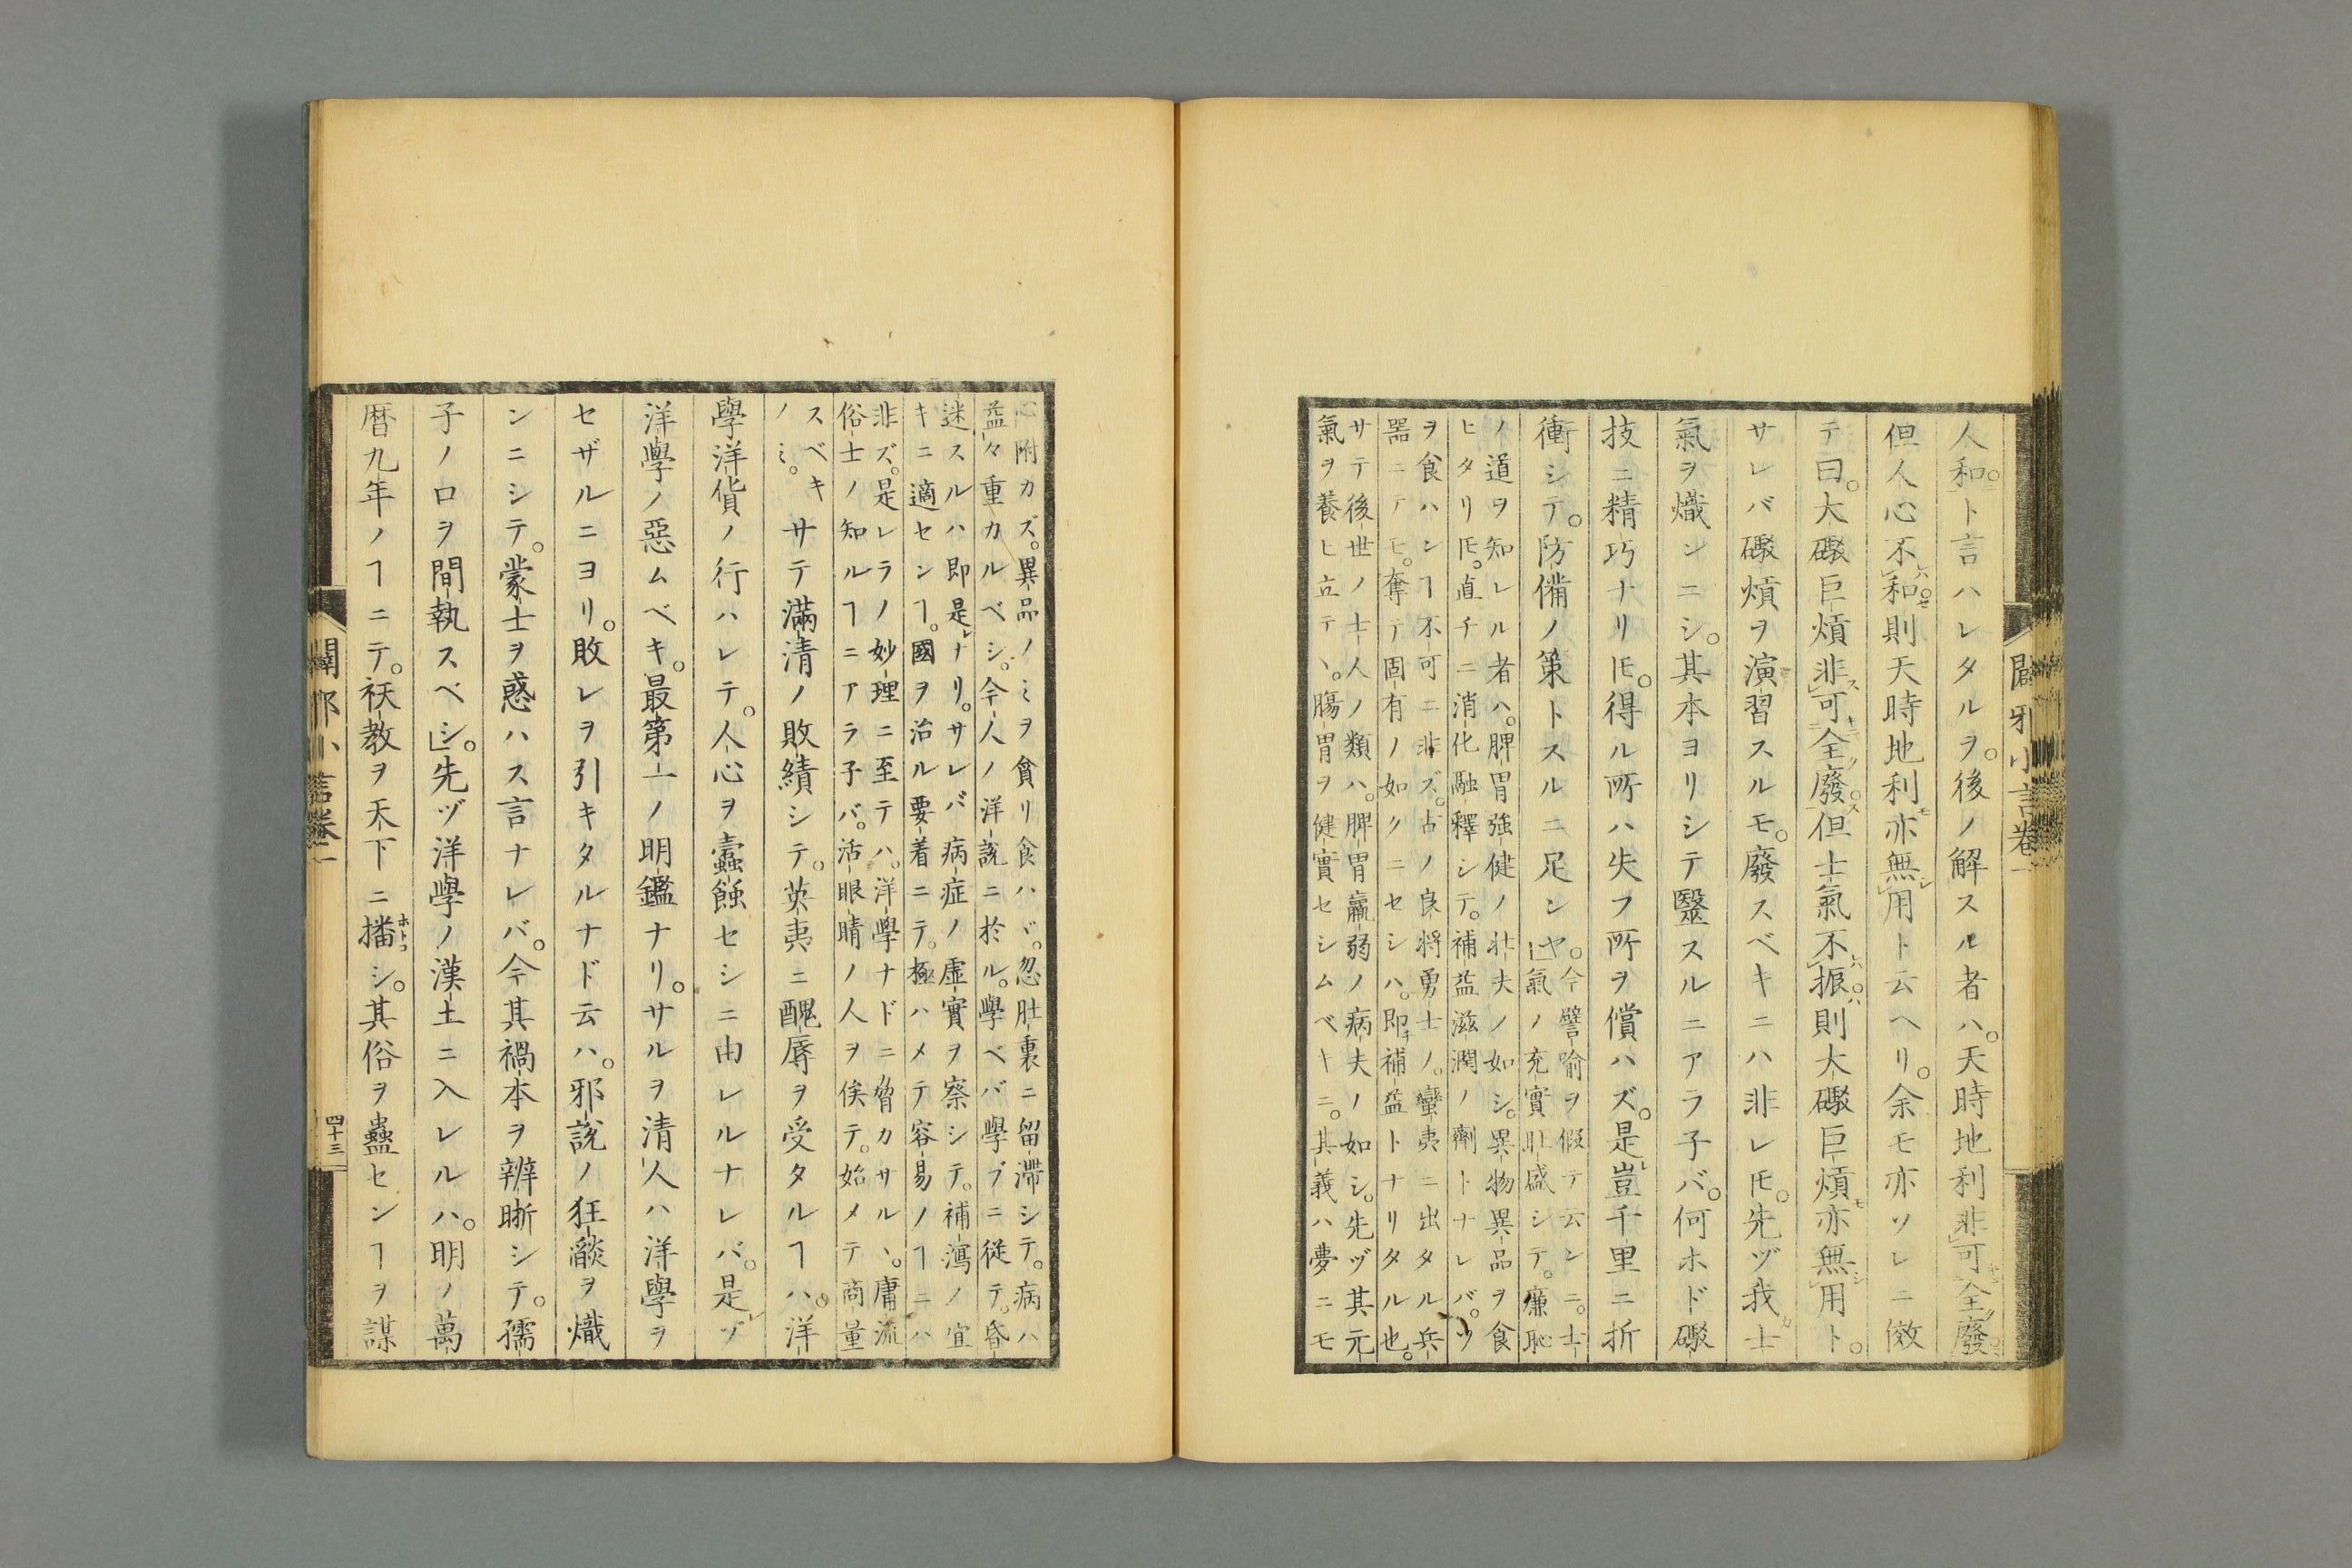 闢邪小言卷一
人和ト言ハレタルヲ。後ノ解スル者ハ。天時地利非可全廢
但人心不和則天時地利亦無用ト云ヘリ。余モ亦ソレニ傚
テ曰。大礮巨熕非可全廢。但士氣不振則大礮巨熕亦無用ト。
サレバ礮熕ヲ演習スルモ。廢スベキニハ非レ𪜈。先ヅ我士
氣ヲ熾ンニシ。其本ヨリシテ毉スルニアラ子バ。何ホド礮
技ニ精巧ナリ𪜈。得ル所ハ失フ所ヲ償ハズ。是豈千里ニ折
衝シテ。防備ノ策トスルニ足ンヤ。
今譬喻ヲ假テ云ンニ。士
氣ノ充實壯盛シテ。廉恥
ノ道ヲ知レル者ハ。脾胃強健ノ壯夫ノ如シ。異物異品ヲ食
ヒタリ𪜈。直チニ消化融釋シテ。補益滋潤ノ劑トナレバ。ツ
ヲ食ハンヿ不可ニ非ズ。古ノ良將勇士ノ。蠻夷ニ出タル兵
器ニテモ。奪テ固有ノ如クニセシハ。即チ補益トナリタル也。
サテ後世ノ士人ノ類ハ。脾胃羸弱ノ病夫ノ如シ。先ヅ其元
氣ヲ養ヒ立テヽ。膓胃ヲ健實セシムベキニ。其義ハ夢ニモ
心附カズ。異品ノミヲ貪リ食ハヾ。忽肚裏ニ留滯シテ。病ハ
益々重カルベシ。今人ノ洋說ニ於ル。學ベバ學ブニ從テ。昏
迷スルハ即是ナリ。サレバ病症ノ虛實ヲ察シテ。補瀉ノ宜
キニ適センヿ。國ヲ治ル要着ニテ。極ハメテ容易ノヿニハ
非ズ。是レラノ妙理ニ至テハ。洋學ナドニ脅カサルヽ。庸流
俗士ノ知ルヿニアラ子バ。活眼睛ノ人ヲ俟テ。始メテ商量
スベキ
ノミ。
サテ滿清ノ敗績シテ。英夷ニ醜辱ヲ受タルヿハ。洋
學洋貨ノ行ハレテ。人心ヲ蠹蝕セシニ由レルナレバ。是レゾ
洋學ノ惡ムベキ。最第一ノ明鑑ナリ。サルヲ清人ハ洋學ヲ
セザルニヨリ。敗レヲ引キタルナド云ハ。邪說ノ狂燄ヲ熾
ンニシテ。蒙士ヲ惑ハス言ナレバ。今其禍本ヲ辨晰シテ。孺
子ノ口ヲ間執スベシ。先ヅ洋學ノ漢土ニ入レルハ。明ノ萬
曆九年ノヿニテ。祆教ヲ天下ニ播シ。其俗ヲ蠱センヿヲ謀
ホトコ
闢邪小言卷一
四十三